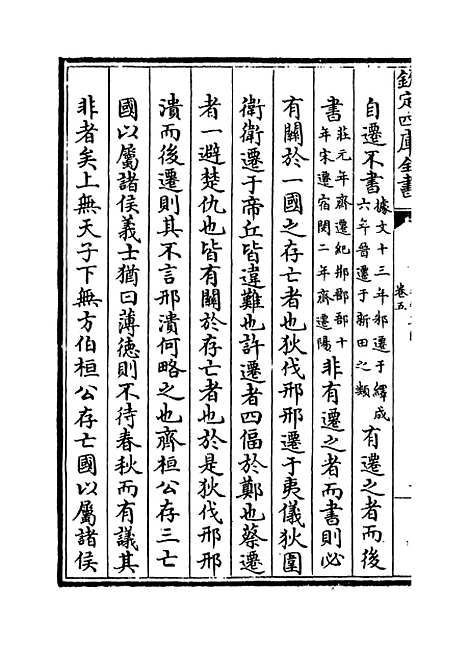 欽定四庫全書
卷五
自遷不書據文十三年邾遷于繹成六年晉遷于新田之類有遷之者而後
書莊元年齊遷紀郱鄑郚十年宋遷宿閔二年齊遷陽非有遷之者而書則必
有關於一國之存亡者也狄伐邢邢遷于夷儀狄圍
衛衛遷于帝丘皆違難也許遷者四偪於鄭也蔡遷
者一避楚仇也皆有關於存亡者也於是狄伐邢邢
潰而後遷則其不言邢潰何略之也齊桓公存三亡
國以屬諸侯義士猶曰薄德則不待春秋而有議其
非者矣上無天子下無方伯桓公存亡國以屬諸侯